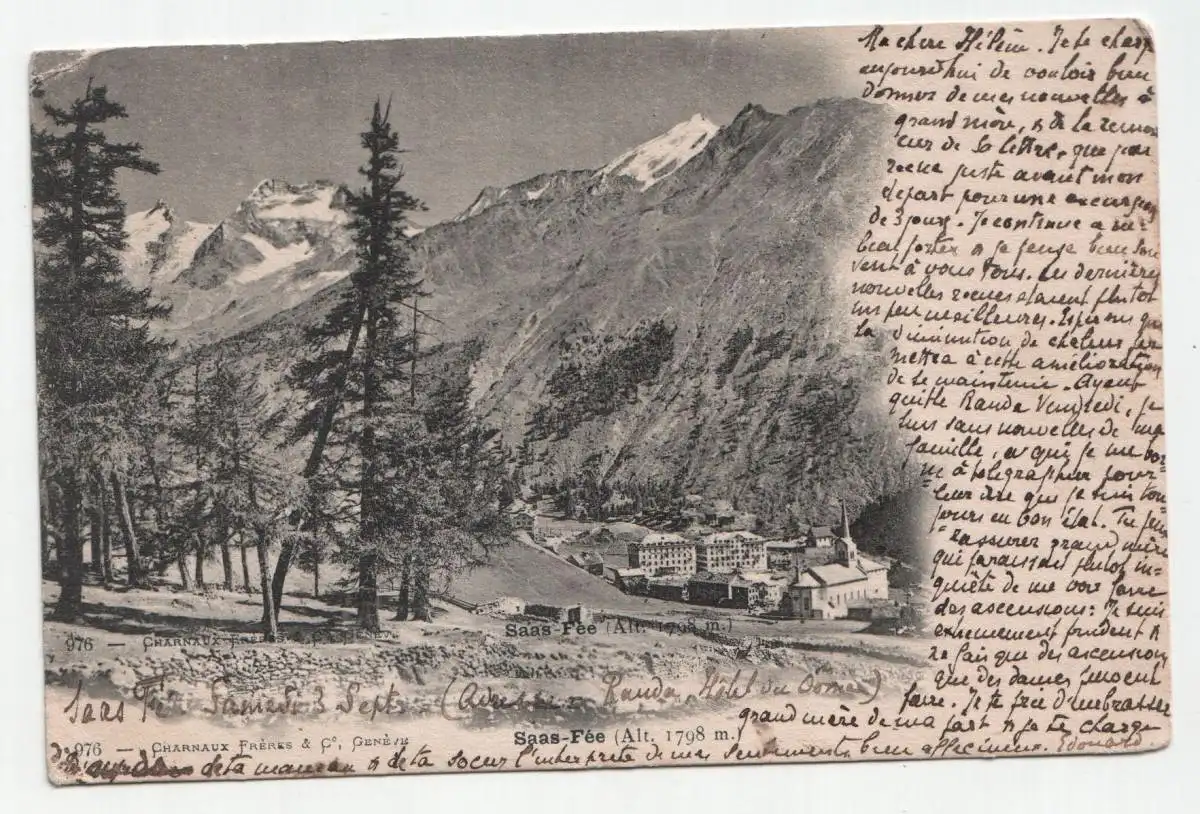 Ma chère Hélène. Je te charge
aujourd'hui de vouloir bien
donner de mes nouvelles à
grand mère, & de la remer
cier de sa lettre, que j'ai
recue juste avant mon
départ pour une excursion
de 3 jours. Je continue a me
bien porter & je pense bien sou
vent à vous tous. Les dernières
nouvelles recues étaient plutot
un peu meilleures. Espérons que
la diminution de chaleur per
mettra à cette amélioration
de se maintenir. Ayant
quitté Randa Vendredi, je
suis sans nouvelles de ma
famille, à qui je me bor
ne à télégraphier pour
leur dire que je suis tou
jours en bon état. Tu peux
rassurer grand mère
qui paraissait plutot in=
quiète de me voir faire
des ascensions: Je suis
extremement prudent &
ne fais que des ascensions
que des dames peuvent
faire. Je te prie d'embrasser
grand mère de ma part & je te charge
de ta maman & de ta soeur l'interprète de mes sentiments bien affectueux. Edouard
976 — CHARNAUX FRÈRES & Co, GENÈVE
Saas-Fée (Alt. 1798 m.)
Saas Fée Samedi 3 Sept. (Adresse: Randa, Hôtel du Dome)
976 — CHARNAUX FRÈRES & Co, GENÈVE
Saas-Fée (Alt. 1798 m.)